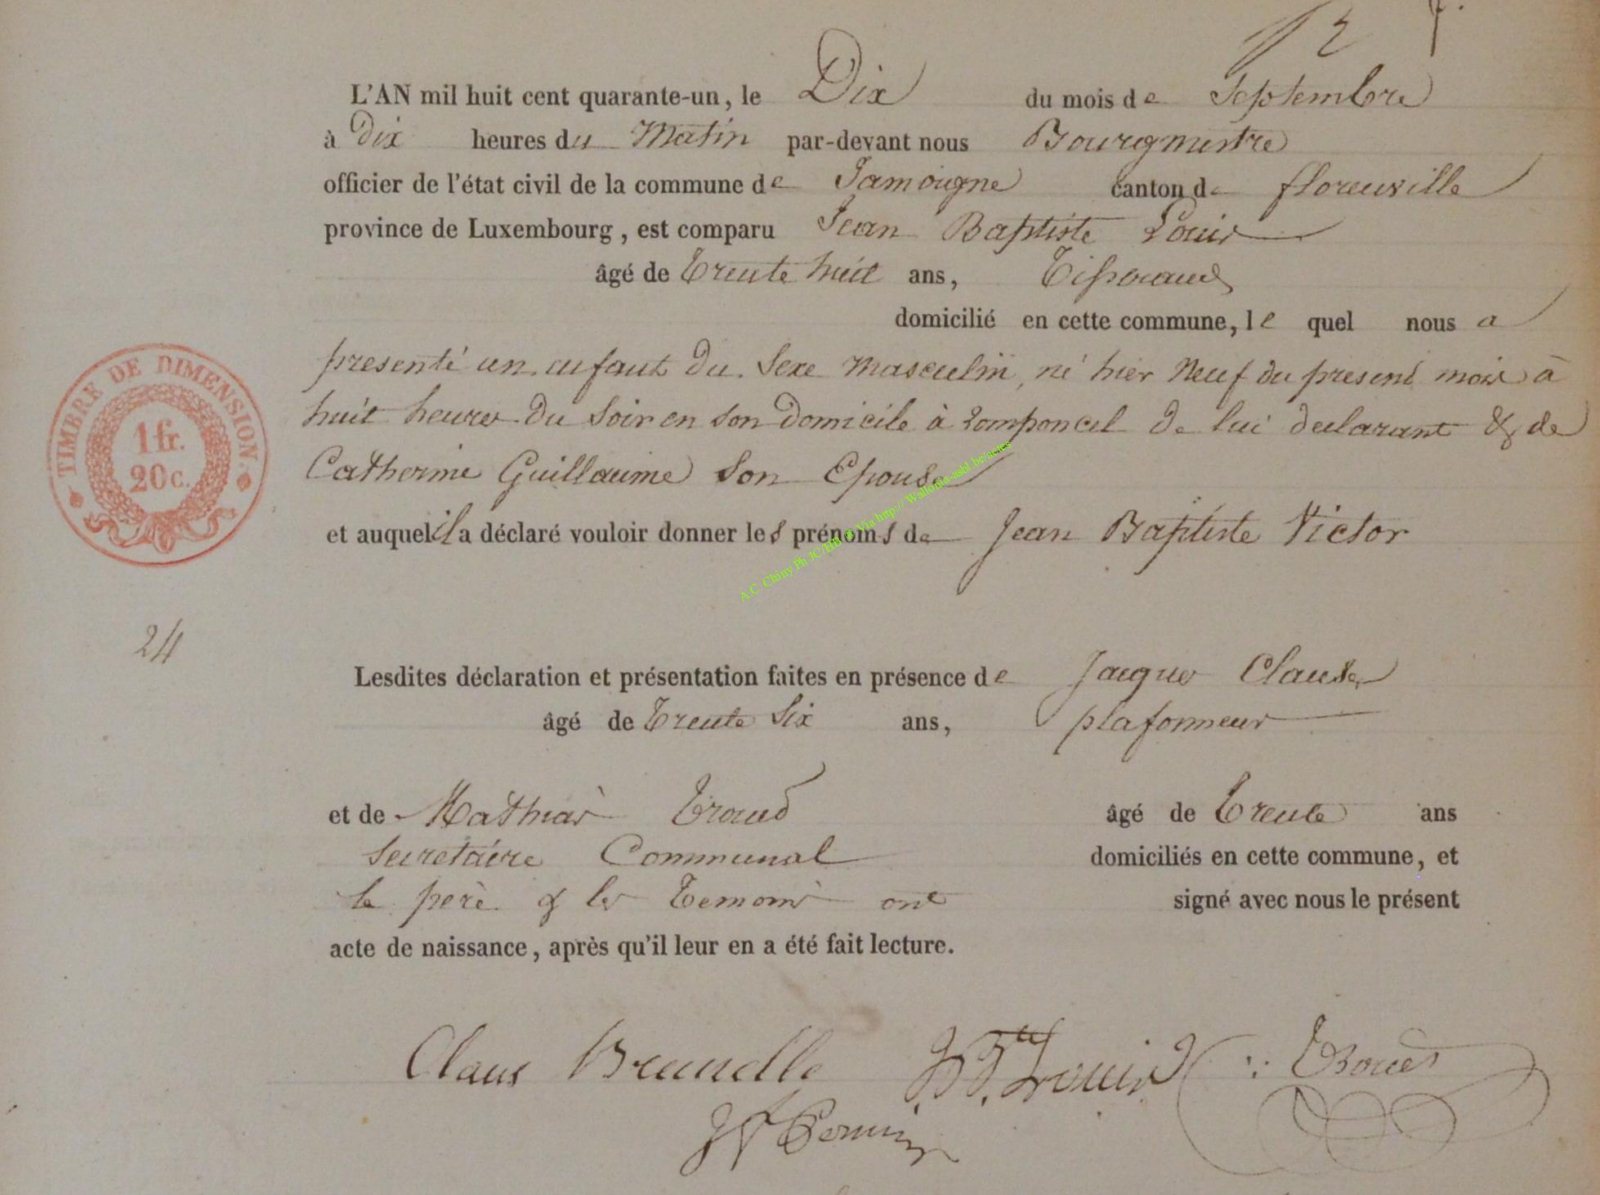 12
L'AN mil huit cent quarante-un, le Dix du mois de Septembre
à Dix heures du Matin par-devant nous Bourgmestre
officier de l'état civil de la commune de Jamoigne canton de florenville
province de Luxembourg, est comparu Jean Baptiste Louis
âgé de Trente huit ans, Tisserand
domicilié en cette commune, le quel nous a
presenté un enfant du Sexe Masculin, né hier Neuf du present mois à
huit heures du Soir en son Domicile à romponcel de lui declarant & de
Catherine Guillaume son Epouse
et auquel il a déclaré vouloir donner les prénoms de Jean Baptiste Victor
TIMBRE DE DIMENSION.
1 fr.
20 c.
24
Lesdites déclaration et présentation faites en présence de Jacques
âgé de Trente Six ans, plafonneur
et de Mathias âgé de Trente ans
Secretaire Communal domiciliés en cette commune, et
le pere & les Temoins ont signé avec nous le présent
acte de naissance, après qu'il leur en a été fait lecture.
Claus Louis